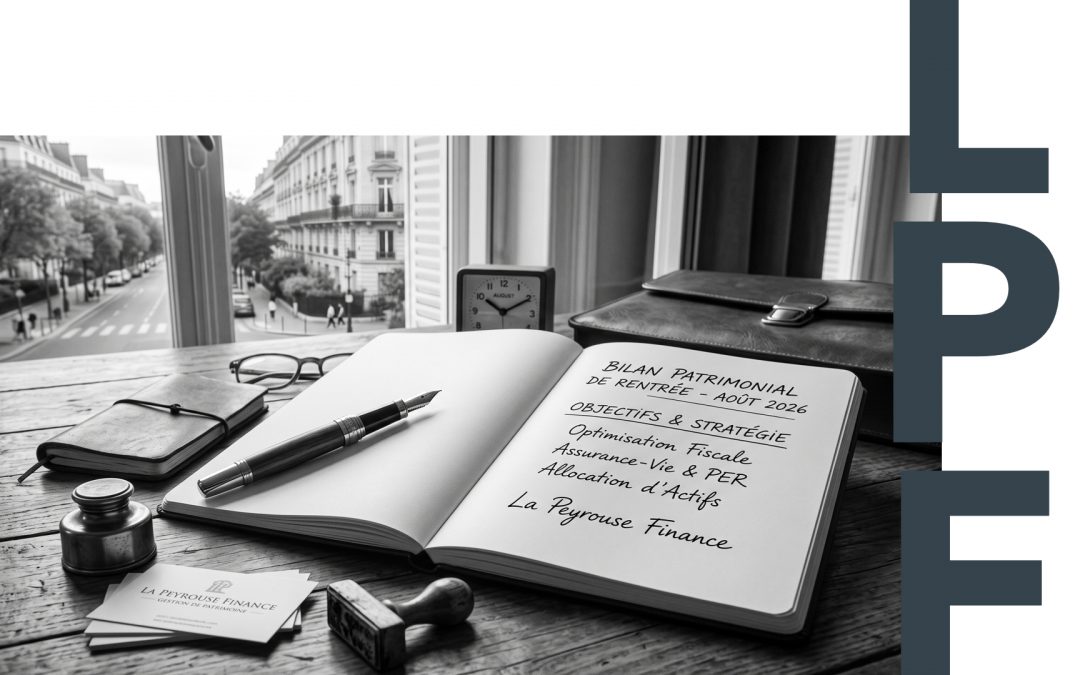 L
P
F
AUGUST
BILAN PATRIMONIAL
DE RENTRÉE - AOÛT 2026
OBJECTIFS & STRATÉGIE
Optimisation Fiscale
Assurance-Vie & PER
Allocation d'Actifs
La Peyrouse Finance
LA PEYROUSE FINANCE
GESTION DE PATRIMOINE